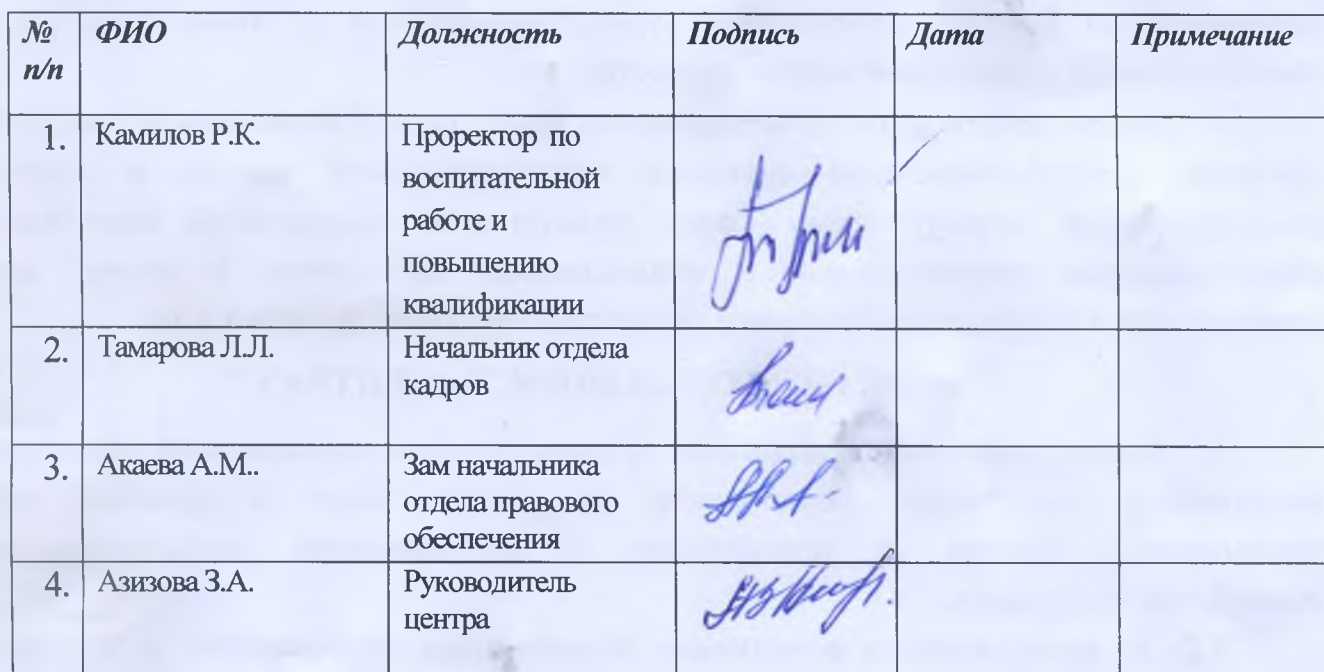 № п/п ФИО Должность Подпись Дата Примечание
1. Камилов Р.К. Проректор по
воспитательной
работе и
повышению
квалификации
2. Тамарова Л.Л. Начальник отдела
кадров
3. Акаева А.М.. Зам начальника
отдела правового
обеспечения
4. Азизова З.А. Руководитель
центра